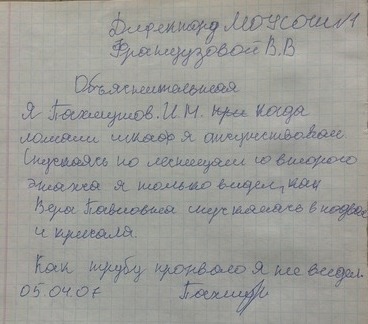 Директору МОУСОШ №1
Французовой В.В
Объяснительная
Я Пахмутов. И М. при когда
ломали шкаф я отсутствовал
Спускаясь по лестницам со второго
этажа я только видел, как
Вера Павловна спускалась в подвал
и кричала.
Как трубу прорвало я не видел.
05.04.07